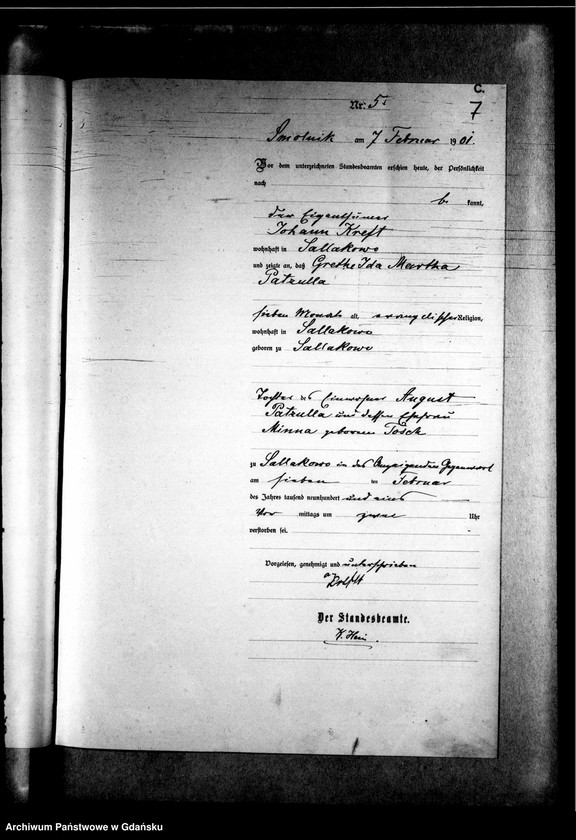 C.
Nr. 5
7
Smolnik am 7 Februar 1901.
Vor dem unterzeichneten Standesbeamten erschien heute, der Persönlichkeit
nach
be kannt,
der Eigenthümer
Johann Kreft
wohnhaft in Sallakowo
und zeigte an, daß Grethe Ida Martha
Patzulla
sieben Monate alt, evangelischer Religion,
wohnhaft in Sallakowo
geboren zu Sallakowo
Tochter des Einwohner August
Patzulla und dessen Ehefrau
Minna geborenen
zu Sallakowo in des Anzeigenden Gegenwart
am sieben ten Februar
des Jahres tausend neunhundert und eins
Vor mittags um zwei Uhr
verstorben sei.
Vorgelesen, genehmigt und unterschrieben
Der Standesbeamte.
Archiwum Państwowe w Gdańsku